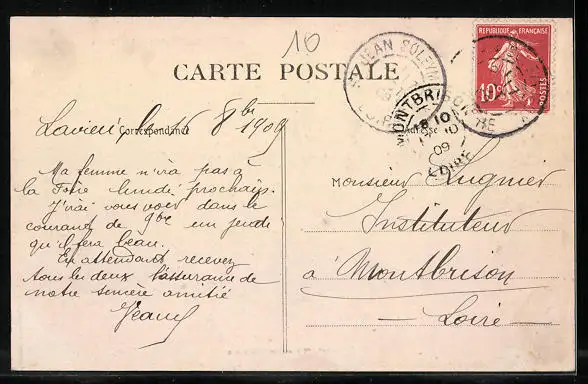 10
CARTE POSTALE
REPUBLIQUE FRANÇAISE
10c
POSTES
JEAN SOLEYM
LOIRE
MONTBRISON
8-10
09
LOIRE
Correspondance
Adresse
Lavieu le 8bre 1909
Ma femme n'ira pas à
la Foire lundi prochain.
J'irai vous voir dans le
courant de 9bre un jeudi
qu'il fera beau.
En attendant recevez
tous les deux l'assurance de
notre sincère amitié
Jean
Monsieur Lugnier
Instituteur
à Montbrison
— Loire —